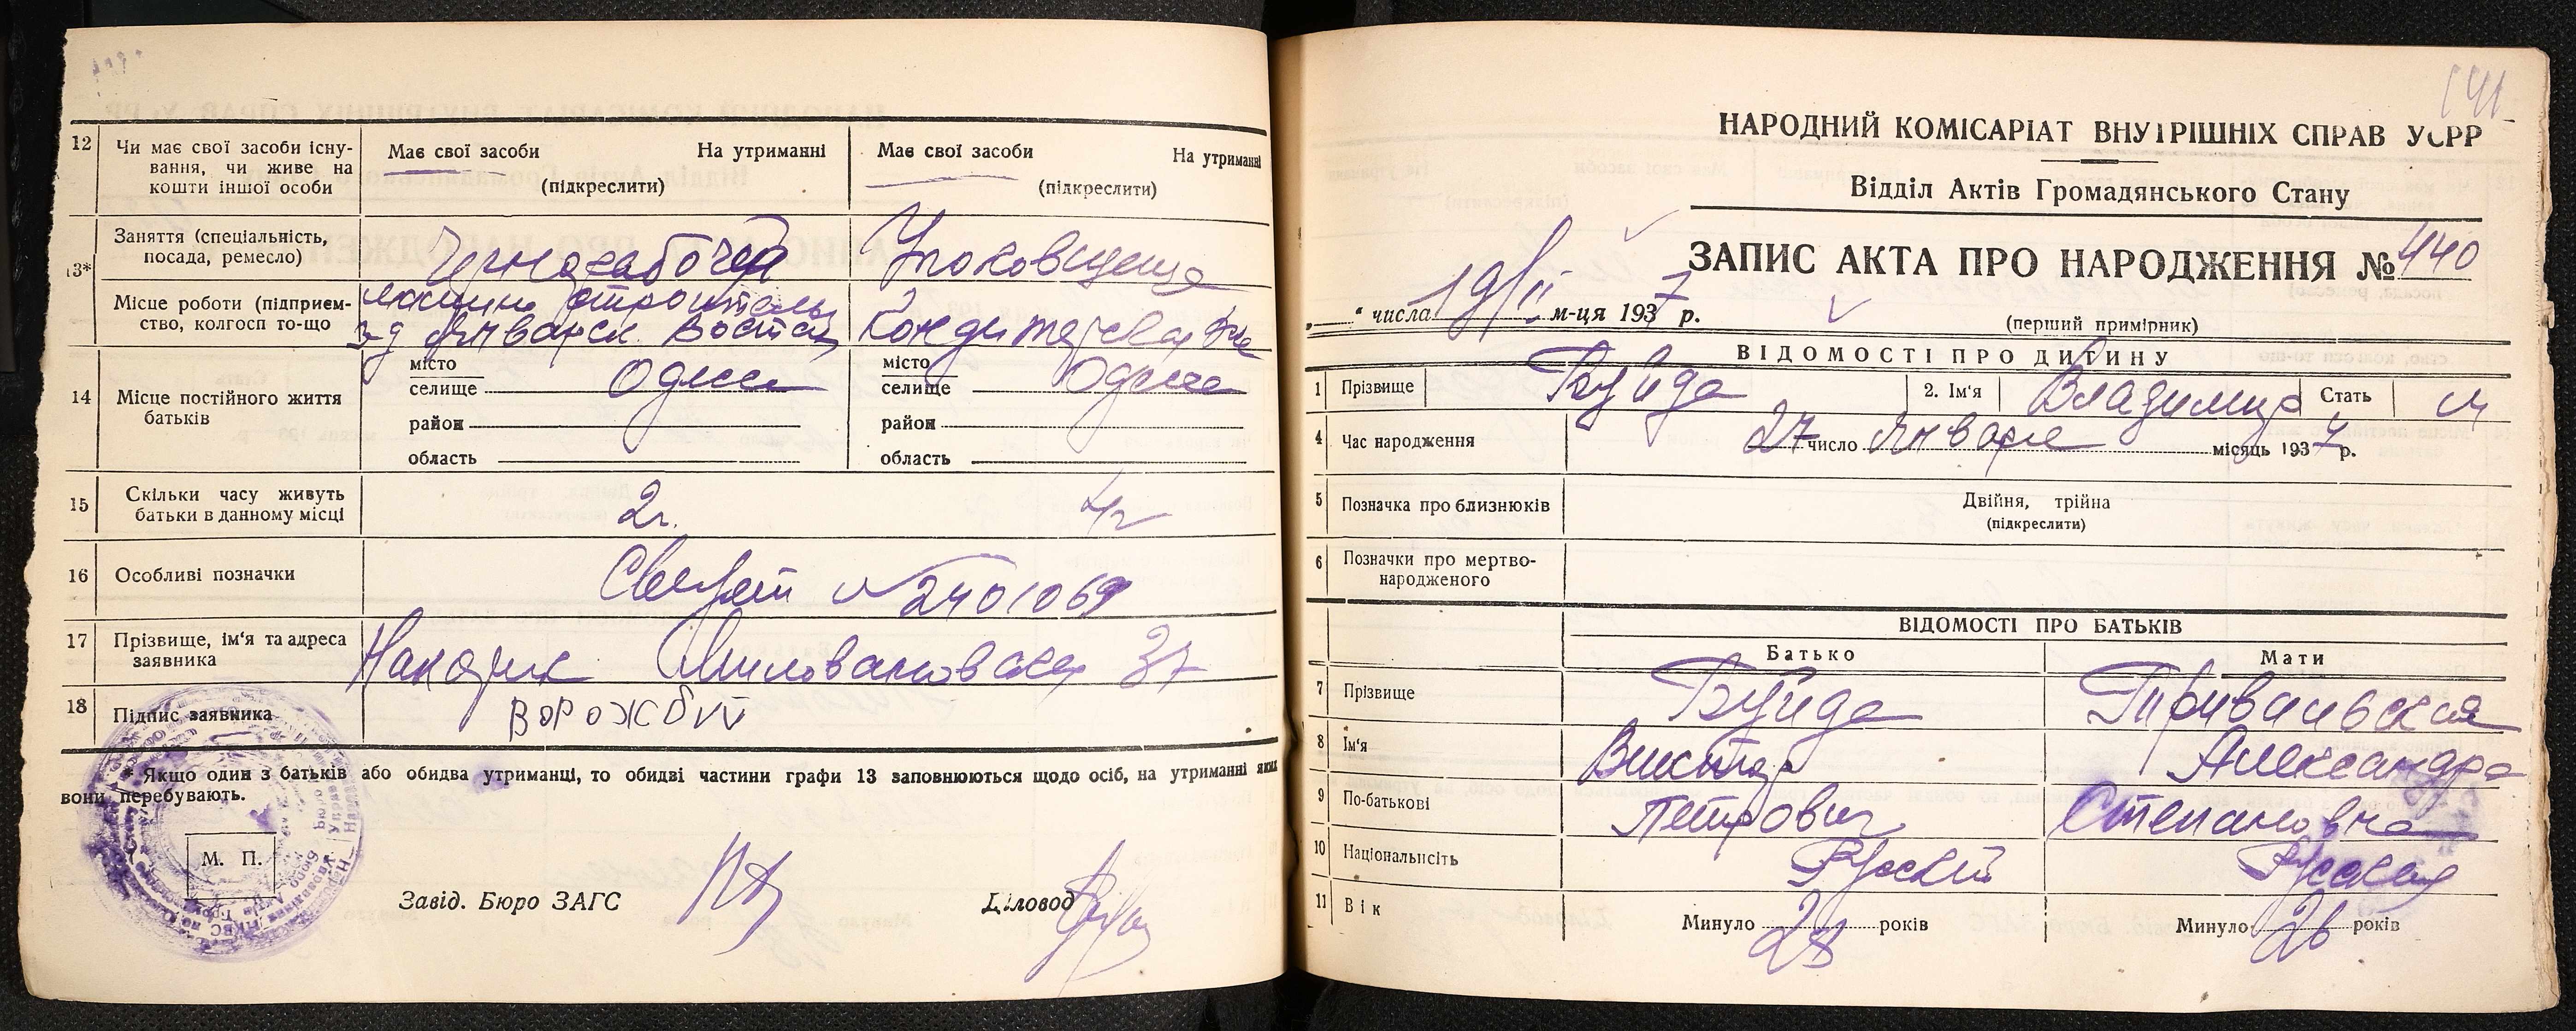 12 Чи має свої засоби існу-
вання, чи живе на
кошти іншої особи
Має свої засоби На утриманні
(підкреслити)
Має свої засоби На утриманні
(підкреслити)
13* Заняття (спеціальність,
посада, ремесло)
Чернорабочий
Упаковщица
Місце роботи (підприєм-
ство, колгосп то-що
машино строитель
з-д Январск. Востан
Кондитерская
14 Місце постійного життя
батьків
місто
селище Одесса
район
область
місто
селище Одесса
район
область
15 Скільки часу живуть
батьки в данному місці
2г.
4г
16 Особливі позначки
№ 2401069
17 Прізвище, ім'я та адреса
заявника
Миловановская 37
18 Підпис заявника
ВОРОЖбИТ
* Якщо один з батьків або обидва утриманці, то обидві частини графи 13 заповнюються щодо осіб, на утриманні яких
вони перебувають.
М. П.
Завід. Бюро ЗАГС
Діловод
141
НАРОДНИЙ КОМІСАРІАТ ВНУТРІШНІХ СПРАВ УСРР
Відділ Актів Громадянського Стану
ЗАПИС АКТА ПРО НАРОДЖЕННЯ № 440
„ “ числа 19/II м-ця 1937 р.
(перший примірник)
ВІДОМОСТІ ПРО ДИТИНУ
1 Прізвище Буйда 2. Ім'я Владимир Стать м
4 Час народження 27 число Января місяць 1937 р.
5 Позначка про близнюків Двійня, трійна
(підкреслити)
6 Позначки про мертво-
народженого
ВІДОМОСТІ ПРО БАТЬКІВ
Батько Мати
7 Прізвище Буйда
8 Ім'я Виктор Александра
9 По-батькові Петрович Степановна
10 Національність Русский Русская
11 Вік Минуло 28 років Минуло 26 років